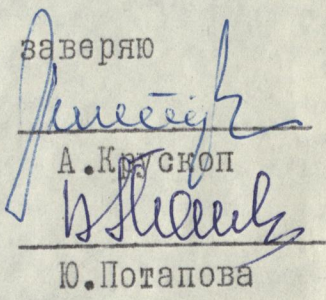 заверяю
А.Крускоп
Ю.Потапова